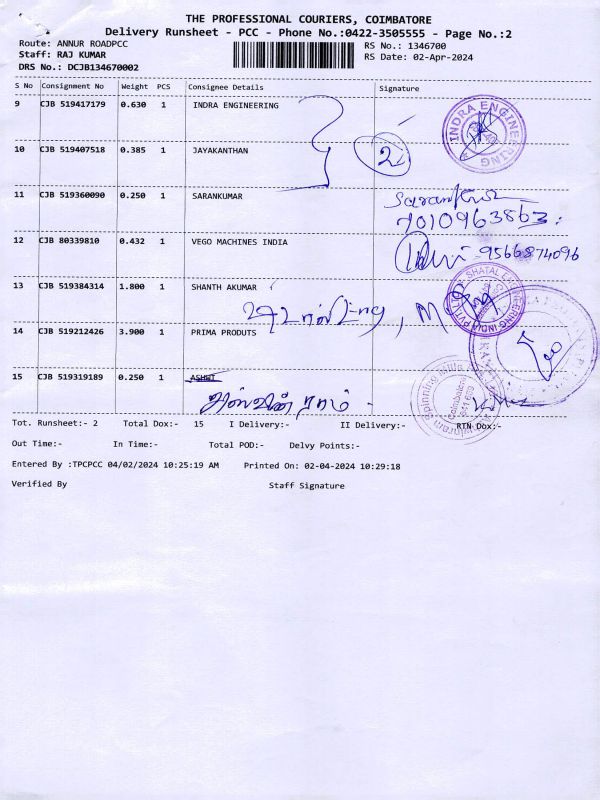 THE PROFESSIONAL COURIERS, COIMBATORE
Delivery Runsheet - PCC - Phone No.:0422-3505555 - Page No.:2
Route: ANNUR ROADPCC
RS No.: 1346700
Staff: RAJ KUMAR
RS Date: 02-Apr-2024
DRS No.: DCJB134670002
S No Consignment No Weight PCS Consignee Details Signature
9 CJB 519417179 0.630 1 INDRA ENGINEERING
INDRA ENGINEERING
10 CJB 519407518 0.385 1 JAYAKANTHAN
2
11 CJB 519360090 0.250 1 SARANKUMAR
7010963863
12 CJB 80339810 0.432 1 VEGO MACHINES INDIA
9566874096
13 CJB 519384314 1.800 1 SHANTH AKUMAR
14 CJB 519212426 3.900 1 PRIMA PRODUTS
15 CJB 519319189 0.250 1 ASHWI
Tot. Runsheet:- 2 Total Dox:- 15 I Delivery:- II Delivery:- RTN Dox:-
Out Time:- In Time:- Total POD:- Delvy Points:-
Entered By :TPCPCC 04/02/2024 10:25:19 AM Printed On: 02-04-2024 10:29:18
Verified By Staff Signature